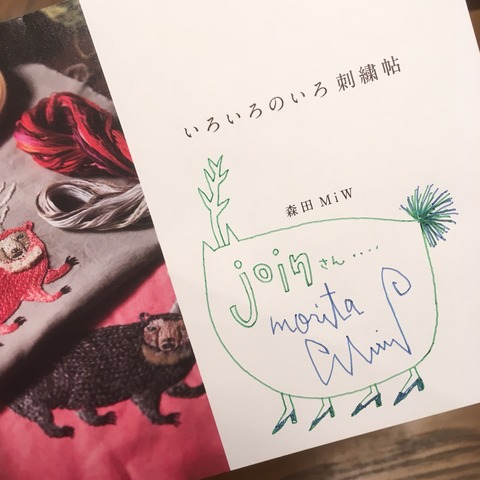 いろいろのいろ 刺繍帖
森田 MiW
joinさん....
morita
MiW